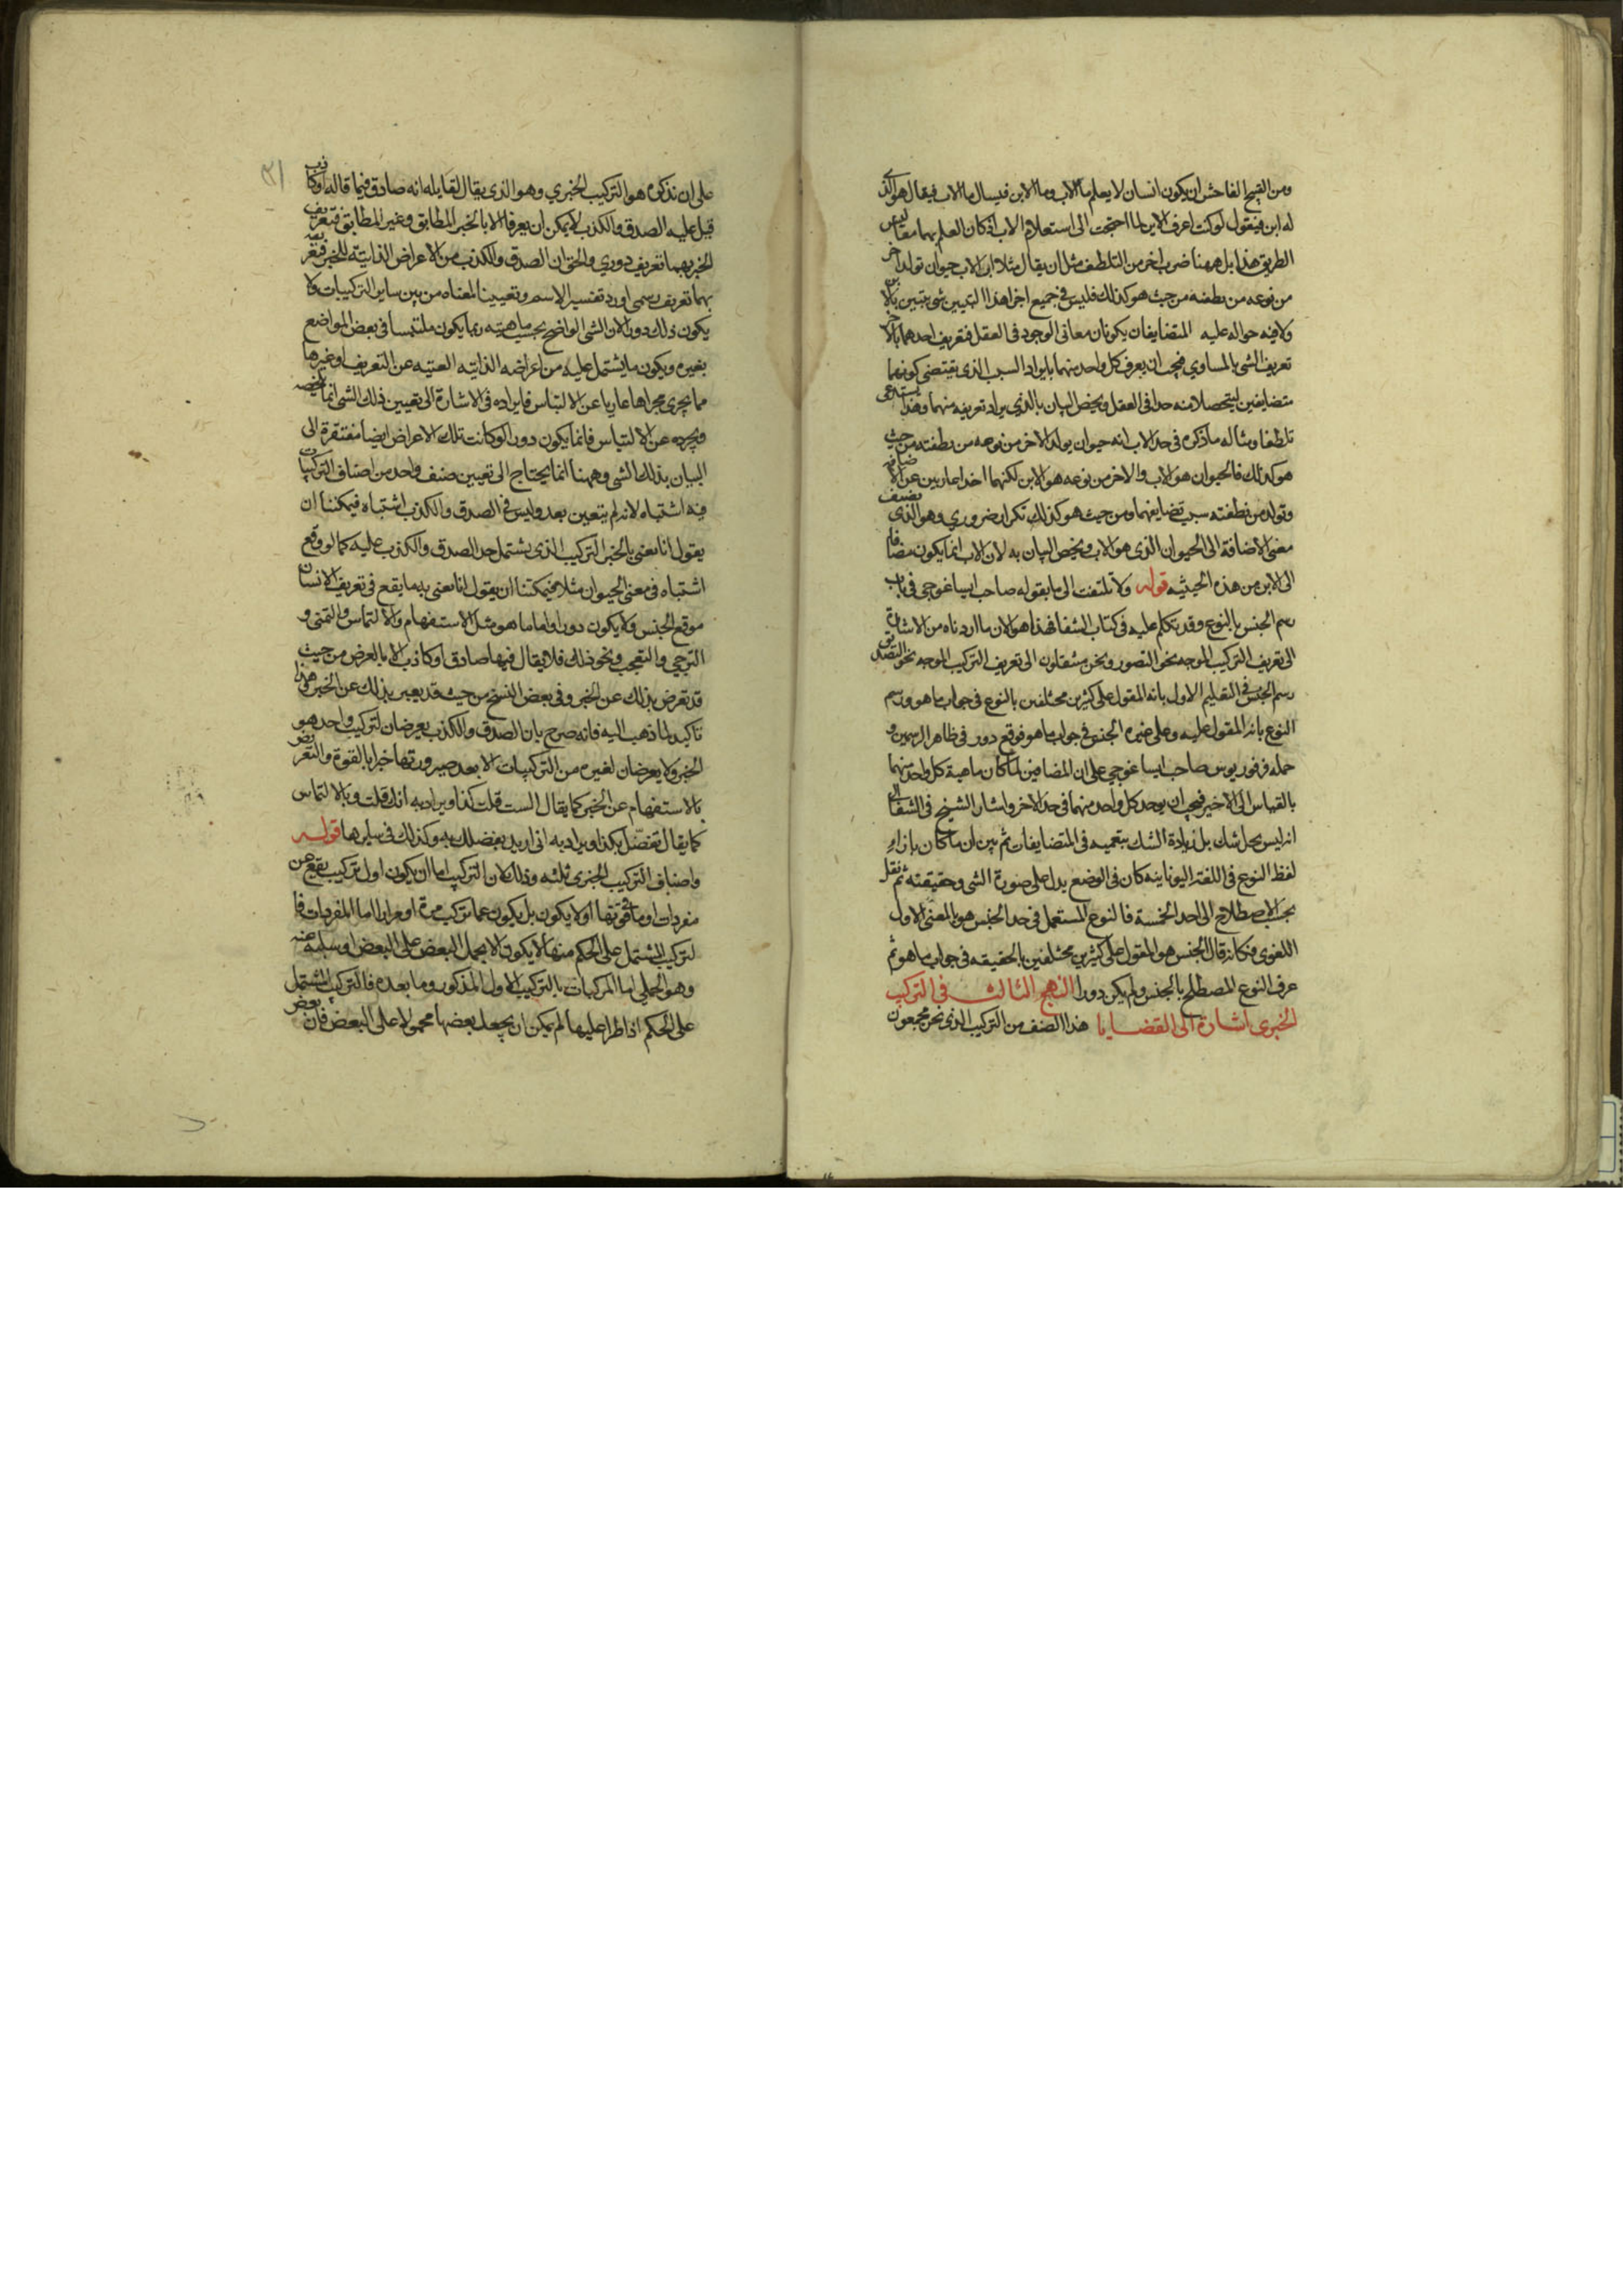 ومن القبيح الفاحش ان يكون انسان لا يعلم ما الاب وما الابن فيسال ما الاب فيقال هو الذى
له ابن فيقول لو كنت اعرف الابن لما احتجت الى استعلام الاب اذ كان العلم بهما معا ليس
الطريق هذا بل ههنا ضرب اخر من التلطف مثل ان يقال مثلا ان الاب حيوان تولد اخر
من نوعه من نطفته من حيث هو كذلك فليس فى جميع اجزا هذا التبيين شى يتبين بالابن
ولا فيه حواله عليه المتضايفان يكونان معا فى الوجود فى العقل فتعريف احدهما بالاخر
تعريف الشى بالمساوي فيجب ان يعرف كل واحد منهما بايراد السبب الذى يقتضى كونهما
متضايفين ليتحصلا منه معا فى العقل ويخص البيان بالذى يراد تعريفه منهما وهذا يستدعى
تلطفا ومثاله ما ذكره فى حد الاب انه حيوان يولد الاخر من نوعه من نطفته من حيث
هو كذلك فالحيوان هو الاب والاخر من نوعه هو الابن لكنهما اخذا عاريين عن الاضافه
وتولد من نطفته سبب تضايفهما ومن حيث هو كذلك تكرار ضروري وهو الذى يضيف
معنى الاضافة الى الحيوان الذى هو الاب ويخص البيان به لان الاب انما يكون مضافا
الى الابن من هذه الحيثيه قوله ولا تلتفت الى ما يقوله صاحب ايساغوجى فى باب
رسم الجنس بالنوع وقد تكلم عليه فى كتاب الشفا فهذا هو الان ما اردناه من الاشارة
الى تعريف التركيب الموجه نحو التصور ونحن منتقلون الى تعريف التركيب الموجه نحو التصديق
رسم الجنس فى التعليم الاول بانه المقول على كثيرين مختلفين بالنوع فى جواب ما هو ورسم
النوع بانه المقول عليه وعلى غيره الجنس فى جواب ما هو فوقع دور فى ظاهر الرسمين و
حمله فرفوريوس صاحب ايساغوجى على ان المضافين لما كان ماهية كل واحد منهما
بالقياس الى الاخير فيجب ان يوجد كل واحد منهما فى حد الاخر واشار الشيخ فى الشفا الى
انه ليس بحل شك بل زيادة الشك بتعميمه فى المتضايفات ثم بين ان ما كان بازاء
لفظ النوع فى اللغة اليونانيه كان فى الوضع يدل على صورة الشى وحقيقته ثم نقل
بحسب الاصطلاح الى احد الخمسة فالنوع المستعمل فى حد الجنس هو بالمعنى الاول
اللغوى فكانه قال الجنس هو المقول على كثيرين مختلفين بالحقيقه فى جواب ما هو ثم
عرف النوع المصطلح بالجنس ولم يكن دورا النهج الثالث فى التركيب
الخبرى اشارة الى القضايا هذا الصنف من التركيب الذى نحن مجمعون
على ان نذكره هو التركيب الخبري وهو الذى يقال لقايله انه صادق فيما قاله او كاذب
قيل عليه الصدق والكذب لا يمكن ان يعرفا الا بالخبر المطابق وغير المطابق فتعريف
الخبر بهما تعريف دوري والحق ان الصدق والكذب من الاعراض الذاتيته للخبر فتعريفه
بهما تعريف رسمى اورد تفسيرا للاسم وتعيينا لمعناه من بين ساير التركيبات ولا
يكون ذلك دورا لان الشى الواضح بحسب ماهيته ربما يكون ملتبسا فى بعض المواضع
بغيره ويكون ما يشتمل عليه من اعراضه الذاتيته الغنيه عن التعريف او غيرها
مما يجرى مجراها عاريا عن الالتباس فايراده فى الاشارة الى تعيين ذلك الشى انما يلخصه
ويجرده عن الالتباس فانما يكون دورا لو كانت تلك الاعراض ايضا مفتقرة الى
البيان بذلك الشى وههنا انما يحتاج الى تعيين صنف واحد من اصناف التركيبات
فيه اشتباه لانه لم يتعين بعد وليس فى الصدق والكذب اشتباه فيمكننا ان
يقول انا نعنى بالخبر التركيب الذى يشتمل حد الصدق والكذب عليه كما لو وقع
اشتباه فى معنى الحيوان مثلا فيمكننا ان يقول انا نعنى به ما يقع فى تعريف الانسان
موقع الجنس ولا يكون دورا واما ما هو مثل الاستفهام والالتماس والتمنى و
الترجي والتعجب ونحو ذلك فلا يقال فيها صادق او كاذب الا بالعرض من حيث
قد تعرض بذلك عن الخبر وفى بعض النسخ من حيث قد يعبر بذلك عن الخبر وهذا
تاكيد لما ذهب اليه فانه صرح بان الصدق والكذب يعرضان لتركيب واحد هو
الخبر ولا يعرضان لغيره من التركيبات الا بعد صيرورتها خبرا بالقوة والتعريض
بالاستفهام عن الخبر كما يقال الست قلت كذا ويراد به انك قلت وبالالتماس
كما يقال تفضل بكذا ويراد به انى اريد بفضلك به وكذلك فى سايرها قوله
واصناف التركيب الخبرى ثلثه وذلك لان التركيب اما ان يكون اول تركيب يقع عن
مفردات او ما فى قوتها او لا يكون بل يكون عما تركب مرة او مرارا اما المفردات فا
لتركيب المشتمل على الحكم منها لا يكون الا بحمل البعض على البعض او سلبه عنه
وهو الحملى اما المركبات بالتركيب الاول المذكور وما بعده فالتركيب المشتمل
على الحكم اذا طرا عليها لم يمكن ان يجعل بعضها محمولا على البعض فان بعض